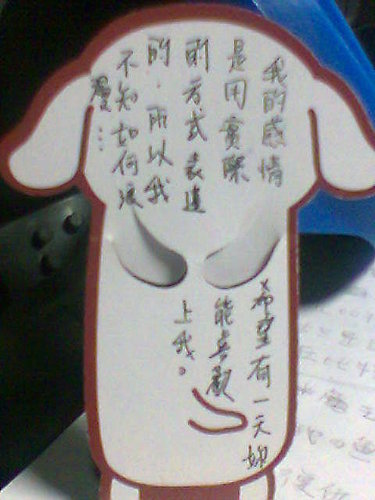 我的感情
是用實際
的方式表達
的，所以我
不知如何浪
漫…
希望有一天妳
能喜歡
上我。